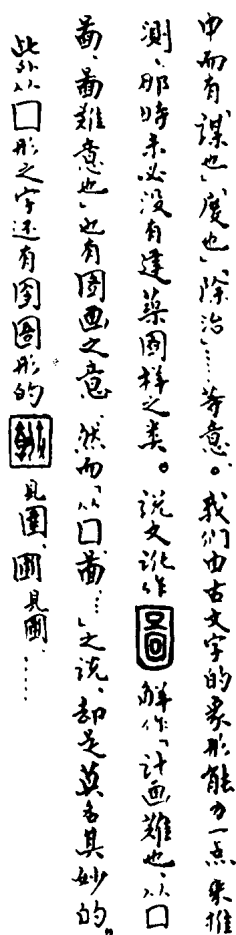 申而有「谋也」「度也」「除治」……等意。我们由古文字的象形能力一点来推
测、那时未必没有建築图样之类。说文讹作圖解作「计画难也、从囗
啚、啚难意也」也有图画之意、然而「从囗啚…」之说、却是莫名其妙的。
此外从囗形之字还有圂圄形的 見圍、圃見圃、……